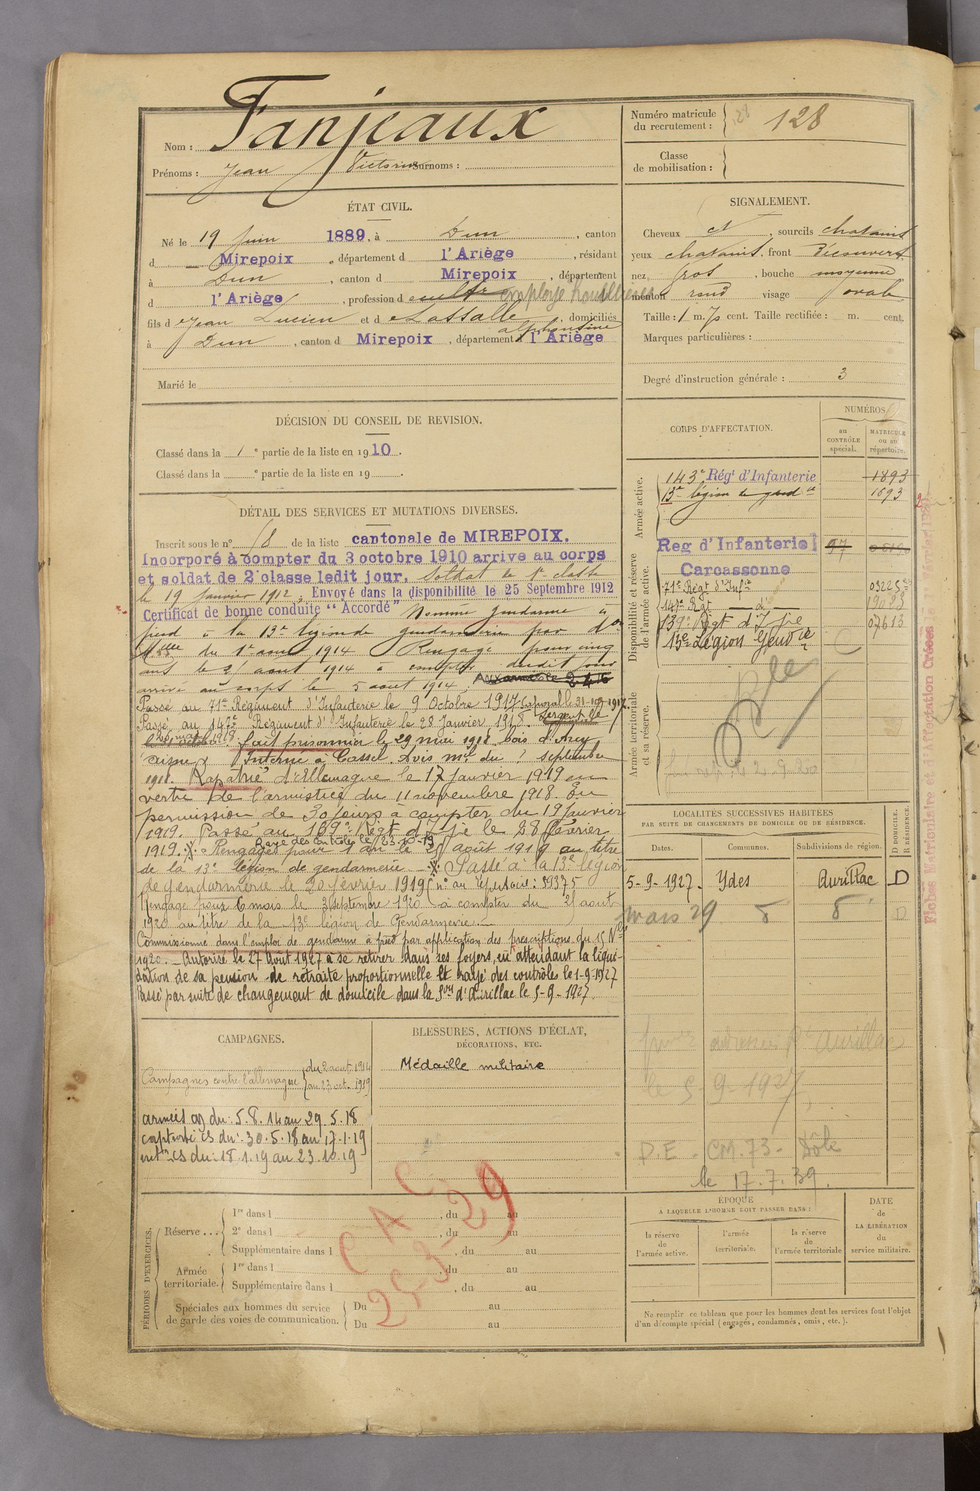 Nom : Fanjeaux
Prénoms : Jean Victorin Surnoms :
Numéro matricule du recrutement : 128
Classe de mobilisation :
ÉTAT CIVIL.
Né le 19 Juin 1889, à Dun, canton
d Mirepoix, département d l'Ariège, résidant
à Dun, canton d Mirepoix, département
d l'Ariège, profession d employé houillères
fils d Jean Lucien et d Lassalle alphonsine, domiciliés
à Dun, canton d Mirepoix, département l'Ariège
Marié le
SIGNALEMENT.
Cheveux ct, sourcils chatains
yeux chatains, front Découvert
nez gros, bouche moyenne
menton rond visage oval
Taille : 1 m. 70 cent. Taille rectifiée : m. cent.
Marques particulières :
Degré d'instruction générale : 3
DÉCISION DU CONSEIL DE REVISION.
Classé dans la 1e partie de la liste en 1910.
Classé dans la e partie de la liste en 19 .
DÉTAIL DES SERVICES ET MUTATIONS DIVERSES.
Inscrit sous le n° 18 de la liste cantonale de MIREPOIX.
Incorporé à compter du 3 octobre 1910 arrive au corps
et soldat de 2e classe ledit jour. Soldat de 1e classe
le 19 Janvier 1912, Envoyé dans la disponibilité le 25 Septembre 1912
Certificat de bonne conduite "Accordé" Nommé gendarme à
pied à la 13e légion de gendarmerie par don
Mlle du 1er aout 1914 Rengagé pour cinq
ans le 2 aout 1914 à compter dudit jour
arrivé au corps le 5 aout 1914,
Passé au 71e Régiment d'Infanterie le 9 Octobre 1917 Caporal le 31-10-1917.
Passé au 147e Régiment d'Infanterie le 28 Janvier 1918. Sergent le
fait prisonnier le 29 mai 1918 bois d'Arcy
(aisne) Interné à Cassel Avis mel du 1 septembre
1918. Rapatrié d'Allemagne le 17 Janvier 1919 en
vertu de l'armistice du 11 novembre 1918. En
permission de 30 jours à compter du 19 Janvier
1919. Passé au 139e Régt d'Infie le 28 février
1919. Rayé des contrôles le 23-10-19
Rengagé pour 1 an le 25 août 1919 au titre
de la 13e légion de gendarmerie - Passé à la 13e légion
de gendarmerie le 20 février 1919 (n° au répertoire : 39375
Rengagé pour 6 mois le 3 septembre 1920 à compter du 2 aout
1920 au titre de la 13e légion de Gendarmerie.
Commissionné dans l'emploi de gendarme à pied par application des prescriptions du 15 Nbre
1920. - Autorisé le 27 Août 1927 à se retirer dans ses foyers, en attendant la liqui-
dation de sa pension de retraite proportionnelle et rayé des contrôles le 1-9-1927
Passé par suite de changement de domicile dans la son d'Aurillac le 5-9-1927.
CORPS D'AFFECTATION.
NUMÉROS
au CONTRÔLE spécial.
MATRICULE ou au répertoire.
Armée active.
143e Régt d'Infanterie 1893
13e légion de gend ie 1693
Disponibilité et réserve de l'armée active.
Reg d'Infanterie 97
Carcassonne
71e Régt d'Infie 03225
147e Rgt d° 19023
139e Régt d'Infie 07613
13e Légion Gendrie
Armée territoriale et sa réserve.
Rle
C
LOCALITÉS SUCCESSIVES HABITÉES
PAR SUITE DE CHANGEMENTS DE DOMICILE OU DE RÉSIDENCE.
Dates. Communes. Subdivisions de région. D DOMICILE. R RÉSIDENCE.
5-9-1927. Ydes Aurillac D
mars 29 D
adresses Aurillac
le 5 9 1927
P.E. CM.73. Dôle
le 17.7.39.
CAMPAGNES.
Campagnes contre l'allemagne du 2 aout 1914 au 23 oct. 1919
armées as du : 5.8.14 au 29.5.18
captivité cs du : 30.5.18 au 17.1.19
cs du : 18.1.19 au 23.10.19
BLESSURES, ACTIONS D'ÉCLAT, DÉCORATIONS, ETC.
Médaille militaire
PÉRIODES D'EXERCICES.
Réserve ...
1re dans l , du au
2e dans l , du au
Supplémentaire dans l , du au
Armée territoriale.
1re dans l , du au
Supplémentaire dans l , du au
Spéciales aux hommes du service de garde des voies de communication.
Du au
Du au
C A C
25-3-29
ÉPOQUE
À LAQUELLE L'HOMME DOIT PASSER DANS :
la réserve de l'armée active.
l'armée territoriale.
la réserve de l'armée territoriale
DATE de LA LIBÉRATION du service militaire.
Ne remplir ce tableau que pour les hommes dont les services font l'objet
d'un décompte spécial (engagés, condamnés, omis, etc.).
Fiches Matriculaire et d'Affectation Créées